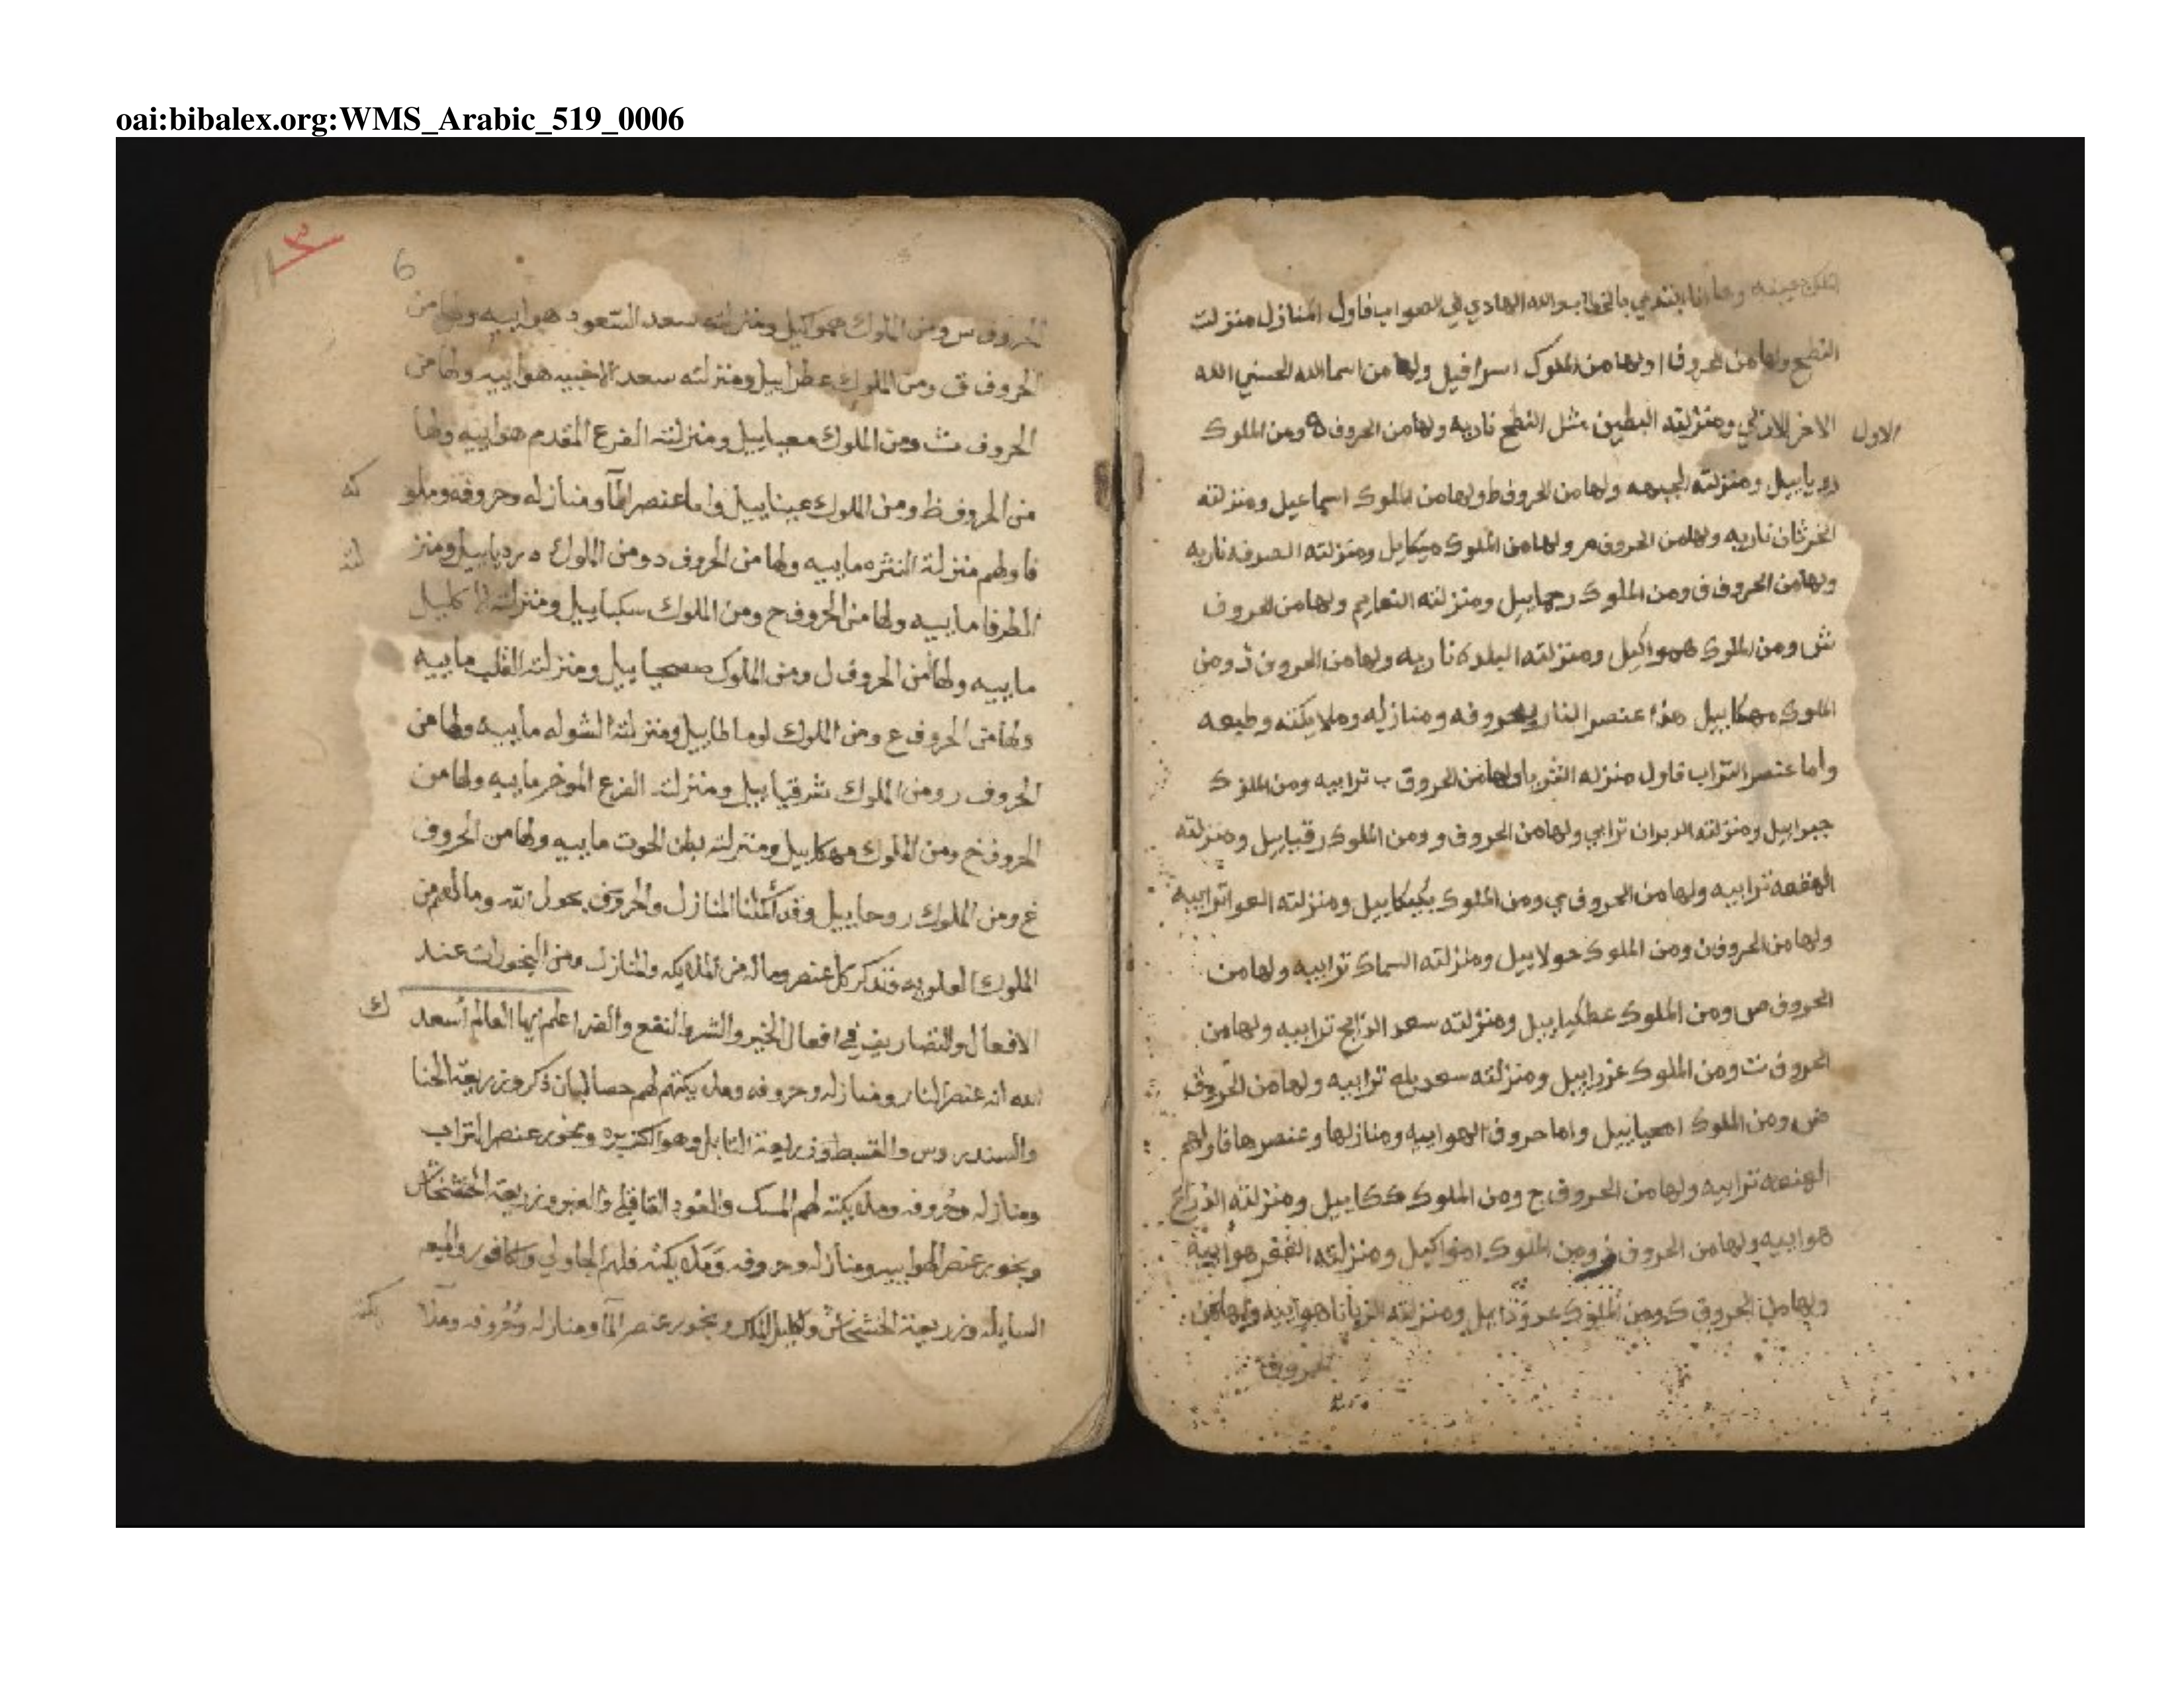 oai:bibalex.org:WMS_Arabic_519_0006
وها انا ابتدي بالخطاب والله الهادي الي الصواب فاول المنازل منزلت
النطح ولها من الحروف ا ولها من الملوك اسرافيل ولها من اسما الله الحسني الله
الاول
الاخر الازلي ومنزلته البطين مثل النطح ناريه ولها من الحروف ه ومن الملوك
ومنزلته الجبهه ولها من الحروف ط ولها من الملوك اسماعيل ومنزلته
الخرثان ناريه ولها من الحروف م ولها من الملوك ميكايل ومنزلته الصرفه ناريه
ولها من الحروف ف ومن الملوك رحماييل ومنزلته النعايم ولها من الحروف
ش ومن الملوك همواكيل ومنزلته البلده ناريه ولها من الحروف ذ ومن
الملوك مهكاييل هذا عنصر النار بحروفه ومنازله وملايكته وطبعه
واما عنصر التراب فاول منزله الثريا ولها من الحروف ب ترابيه ومن الملوك
جبراييل ومنزلته الدبران ترابي ولها من الحروف و ومن الملوك رقياييل ومنزلته
الهقعه ترابيه ولها من الحروف ي ومن الملوك بكيكاييل ومنزلته العوا ترابيه
ولها من الحروف ن ومن الملوك حولاييل ومنزلته السماك ترابيه ولها من
الحروف ص ومن الملوك عطكياييل ومنزلته سعد الذابح ترابيه ولها من
الحروف ت ومن الملوك عزراييل ومنزلته سعد بلع ترابيه ولها من الحروف
ض ومن الملوك امعياييل واما حروف الهواييه ومنازلها وعنصرها فاولهم
الهنعه ترابيه ولها من الحروف ج ومن الملوك ككاييل ومنزلته الذراع
هواييه ولها من الحروف ز ومن الملوك امواكيل ومنزلته الغفر هواييه
ولها من الحروف ك ومن الملوك ومنزلته الزبانا هواييه ولها من
الحروف
6
الحروف س ومن الملوك همواكيل ومنزلته سعد السعود هواييه ولها من
الحروف ق ومن الملوك عطراييل ومنزلته سعد الاخبيه هواييه ولها من
الحروف ث ومن الملوك معياييل ومنزلته الفرع المقدم هواييه ولها
من الحروف ظ ومن الملوك عيناييل واما عنصر المآ ومنازله وحروفه وملو
كه
فاولهم منزلة النثره ماييه ولها من الحروف د ومن الملوك دردياييل ومنز
لته
الطرفا ماييه ولها من الحروف ح ومن الملوك سكياييل ومنزلته الاكليل
ماييه ولها من الحروف ل ومن الملوك ومنزلته القلب ماييه
ولها من الحروف ع ومن الملوك لوماطاييل ومنزلته الشوله ماييه ولها من
الحروف ر ومن الملوك شرقياييل ومنزلته الفرع الموخر ماييه ولها من
الحروف خ ومن الملوك مهكاييل ومنزلته بطن الحوت ماييه ولها من الحروف
غ ومن الملوك روحاييل وقد اكملنا المنازل والحروف بحول الله وما لهم من
الملوك العلويه فنذكر كل عنصر وما له من الملايكه والمنازل ومن البخورات عند
ذلك
الافعال والتصاريف في افعال الخير والشر والنفع والضر اعلم ايها العالم اسعد
الله ان عنصر النار ومنازله وحروفه وملايكتهم لهم حصالبان ذكر وزريعة الحنا
والسندروس والقسط وزريعة التابل وهو الكزبره وبخور عنصر التراب
ومنازله وحروفه وملايكته لهم المسك والعود القاقلي والعنبر وزريعة الخشخاش
وبخور عنصر الهواييه ومنازله وحروفه وملايكته فلهم الجاولي وكافور والميعه
السايله وزريعة الخشخاش واكليل الملك وبخور عنصر المآ ومنازله وحروفه وملا
يكته